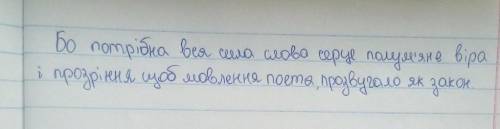 Бо потрібна вся сила слова серце полум'яне віра
і прозріння щоб мовлення поета, прозвучало як закон.